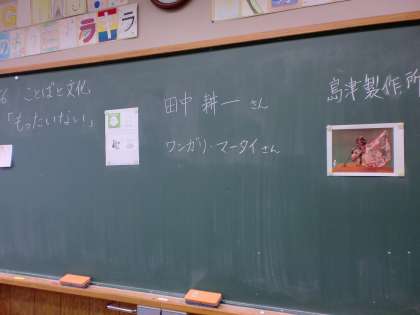 ラ ラ
6 ことばと文化
「もったいない」
田中 耕一 さん
ワンガリ・マータイさん
島津製作所